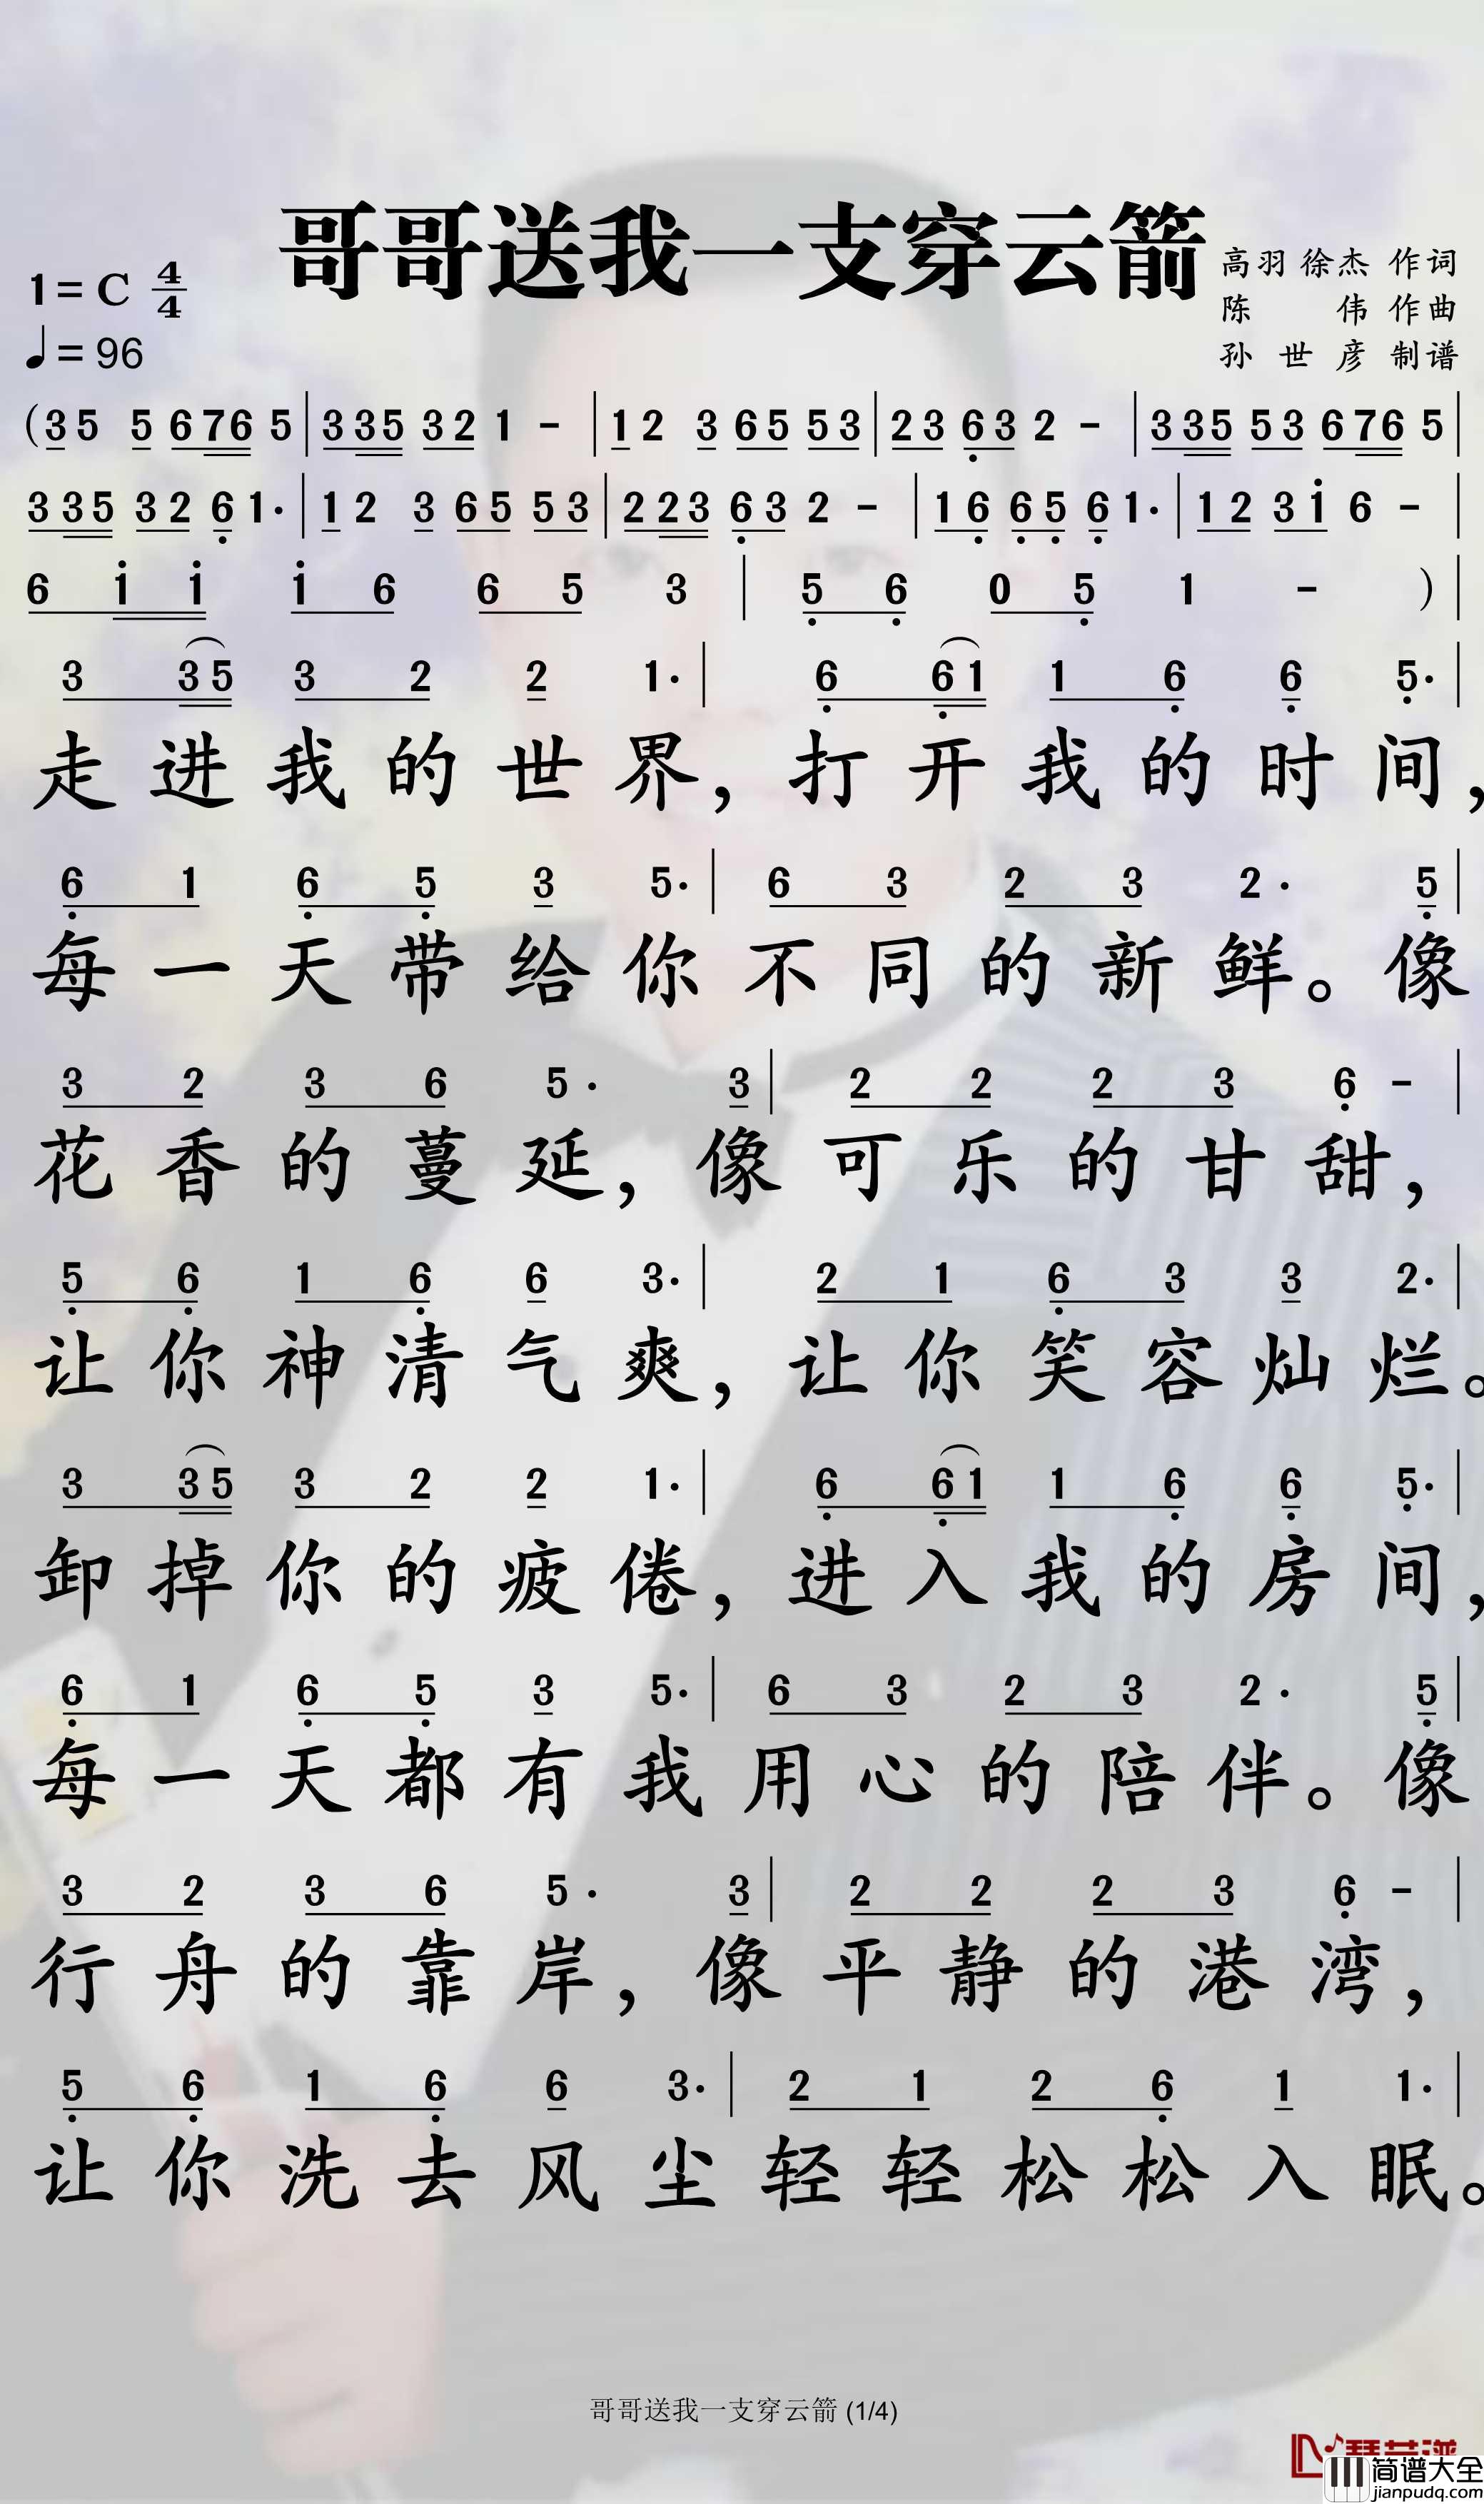 哥哥送我一支穿云箭
高羽 徐杰 作词
1=C 4/4
陈 伟 作曲
♩=96
孙世彦 制谱
(3 5 5 6 7 6 5 | 3 3 5 3 2 1 - | 1 2 3 6 5 5 3 | 2 3 6̣ 3 2 - | 3 3 5 5 3 6 7 6 5 |
3 3 5 3 2 6̣ 1· | 1 2 3 6 5 5 3 | 2 2 3 6̣ 3 2 - | 1 6̣ 6̣ 5̣ 6̣ 1· | 1 2 3 1̇ 6 - |
6 1̇ 1̇ 1̇ 6 6 5 3 | 5̣ 6̣ 0 5̣ 1 - ) |
3 3 5 3 2 2 1· | 6̣ 6̣ 1 1 6̣ 6̣ 5̣· |
走进我的世界，打开我的时间，
6̣ 1 6̣ 5̣ 3 5· | 6 3 2 3 2· 5̣ |
每一天带给你不同的新鲜。像
3 2 3 6 5· 3 | 2 2 2 3 6̣ - |
花香的蔓延，像可乐的甘甜，
5̣ 6̣ 1 6̣ 6 3· | 2 1 6̣ 3 3 2· |
让你神清气爽，让你笑容灿烂。
3 3 5 3 2 2 1· | 6̣ 6̣ 1 1 6̣ 6̣ 5̣· |
卸掉你的疲倦，进入我的房间，
6̣ 1 6̣ 5̣ 3 5· | 6 3 2 3 2· 5̣ |
每一天都有我用心的陪伴。像
3 2 3 6 5· 3 | 2 2 2 3 6̣ - |
行舟的靠岸，像平静的港湾，
5̣ 6̣ 1 6̣ 6 3· | 2 1 2 6̣ 1 1· |
让你洗去风尘轻轻松松入眠。
哥哥送我一支穿云箭 (1/4)
简谱大全
jianpudq.com